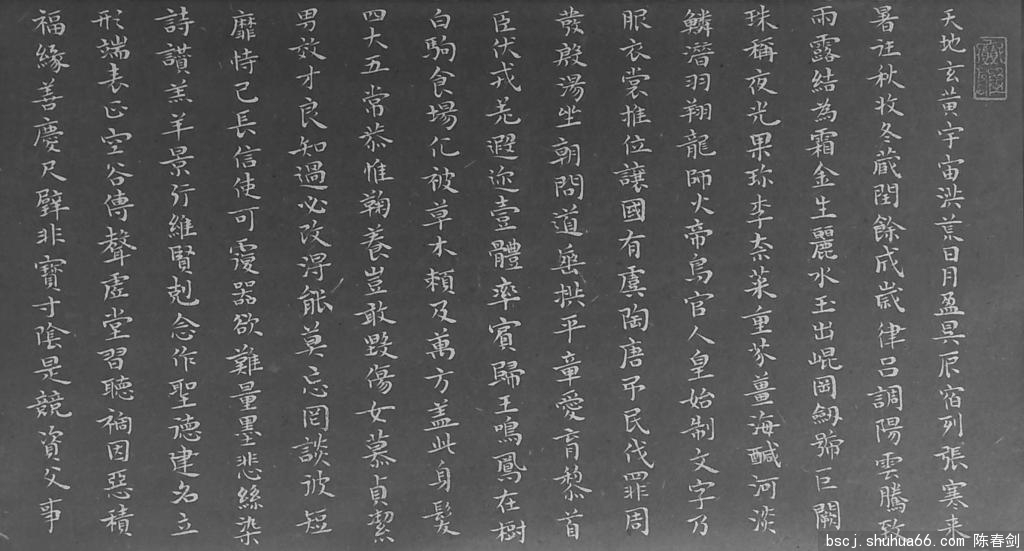 天地玄黄宇宙洪荒日月盈昃辰宿列張寒来
暑往秋收冬蔵閏餘成歲律吕調陽雲騰致
雨露結為霜金生麗水玉出崐岡劔號巨闕
珠稱夜光果珎李柰菜重芥薑海醎河淡
鱗潛羽翔龍師火帝鳥官人皇始制文字乃
服衣裳推位讓國有虞陶唐弔民伐罪周
發殷湯坐朝問道垂拱平章愛育黎首
臣伏戎羌遐迩壹體率賓歸王鳴鳳在樹
白駒食場化被草木賴及萬方盖此身髮
四大五常恭惟鞠養豈敢毀傷女慕貞潔
男效才良知過必改得能莫忘罔談彼短
靡恃己長信使可覆器欲難量墨悲絲染
詩讚羔羊景行維賢剋念作聖德建名立
形端表正空谷傳聲虛堂習聽禍因惡積
福緣善慶尺璧非寶寸陰是競資父事
bscj.shuhua66.com 陈春剑